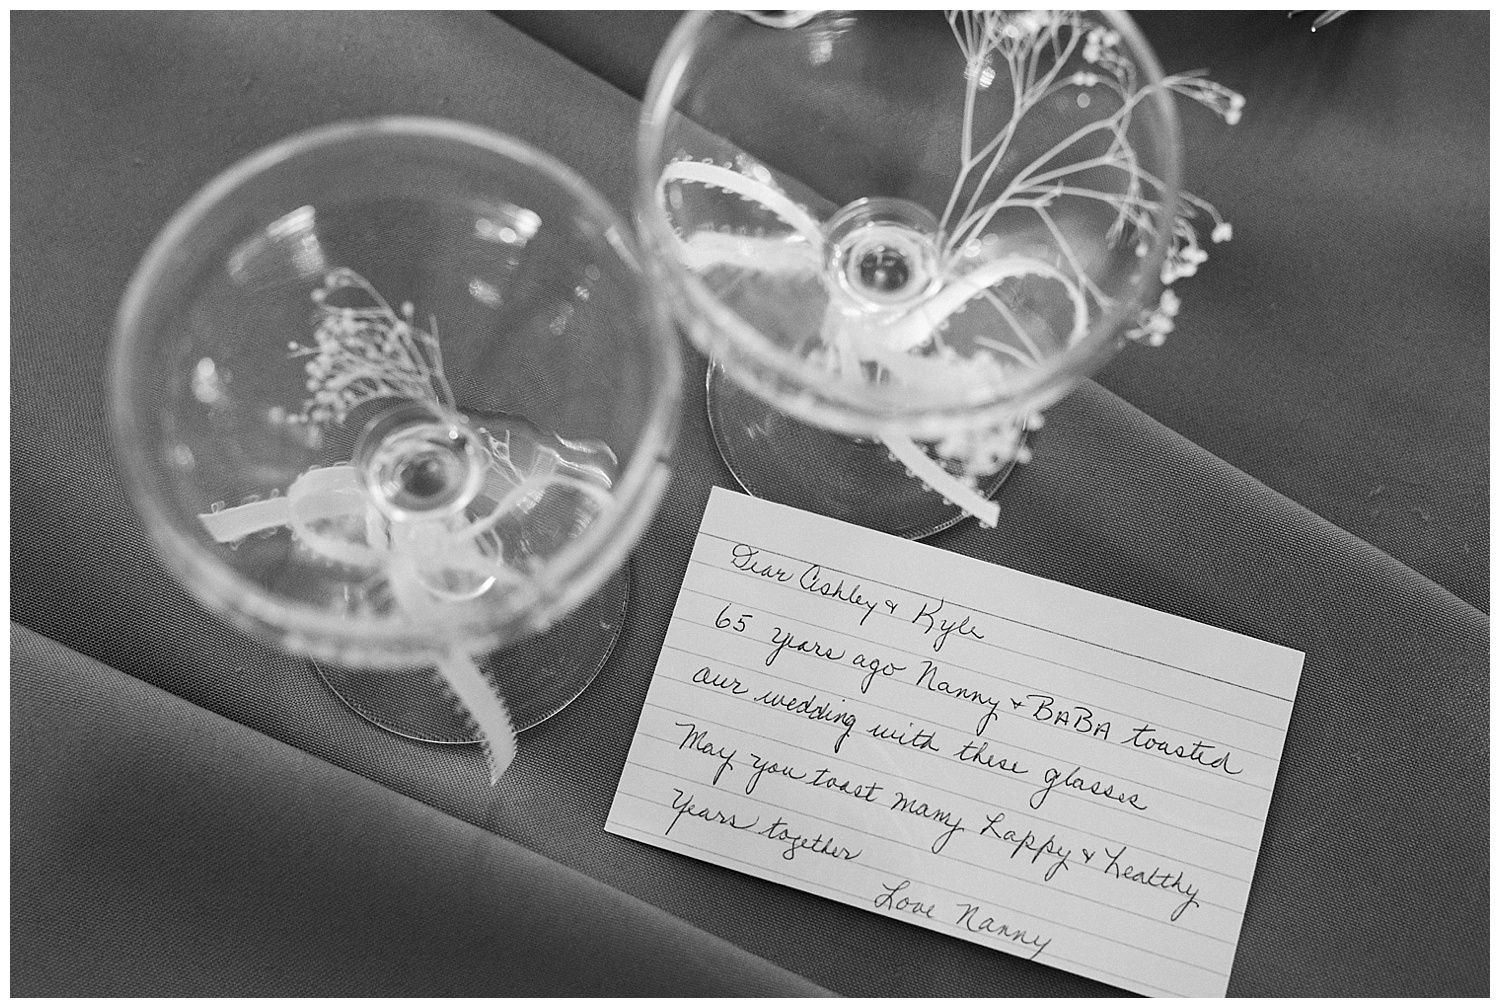 Dear Ashley & Kyle
65 years ago Nanny & BABA toasted
our wedding with these glasses
May you toast many happy & healthy
Years together
Love Nanny